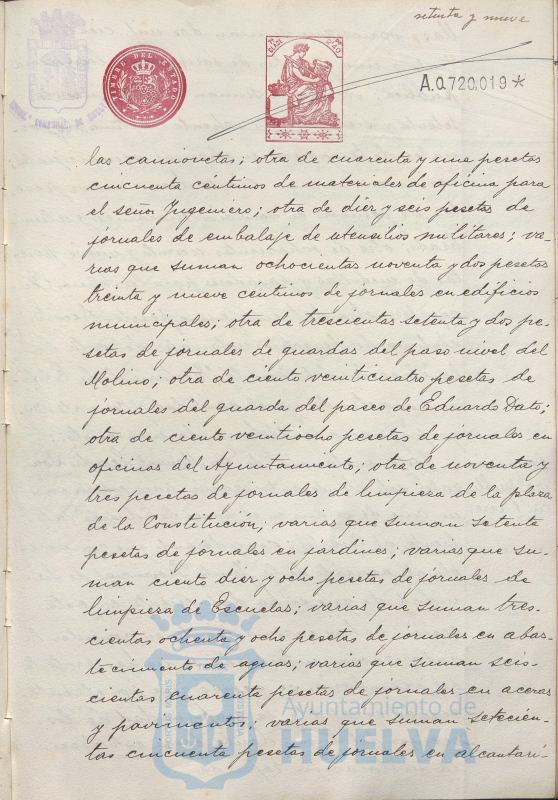 setenta y nueve
TIMBRE DEL ESTADO
A.0.720,019*
las camiovetas; otra de cuarenta y una pesetas
cincuenta céntimos de materiales de oficina para
el señor Ingeniero; otra de diez y seis pesetas de
jornales de embalaje de utensilios militares; va-
rias que suman ochocientas noventa y dos pesetas
treinta y nueve céntimos de jornales en edificios
municipales; otra de trescientas setenta y dos pe-
setas de jornales de guardas del paso nivel del
Molino; otra de ciento veinticuatro pesetas de
jornales del guarda del paseo de Eduardo Dato;
otra de ciento ventiocho pesetas de jornales en
oficinas del Ayuntamiento; otra de noventa y
tres pesetas de jornales de limpieza de la plaza
de la Constitución; varias que suman setenta
pesetas de jornales en jardines; varias que su-
man ciento diez y ocho pesetas de jornales de
limpieza de Escuelas; varias que suman tres-
cientas ochenta y ocho pesetas de jornales en abas-
tecimiento de aguas; varias que suman seis-
cientas cuarenta pesetas de jornales en aceras
y pavimentos; varias que suman setecien-
tas cincuenta pesetas de jornales en alcantari-
Ayuntamiento de
HUELVA